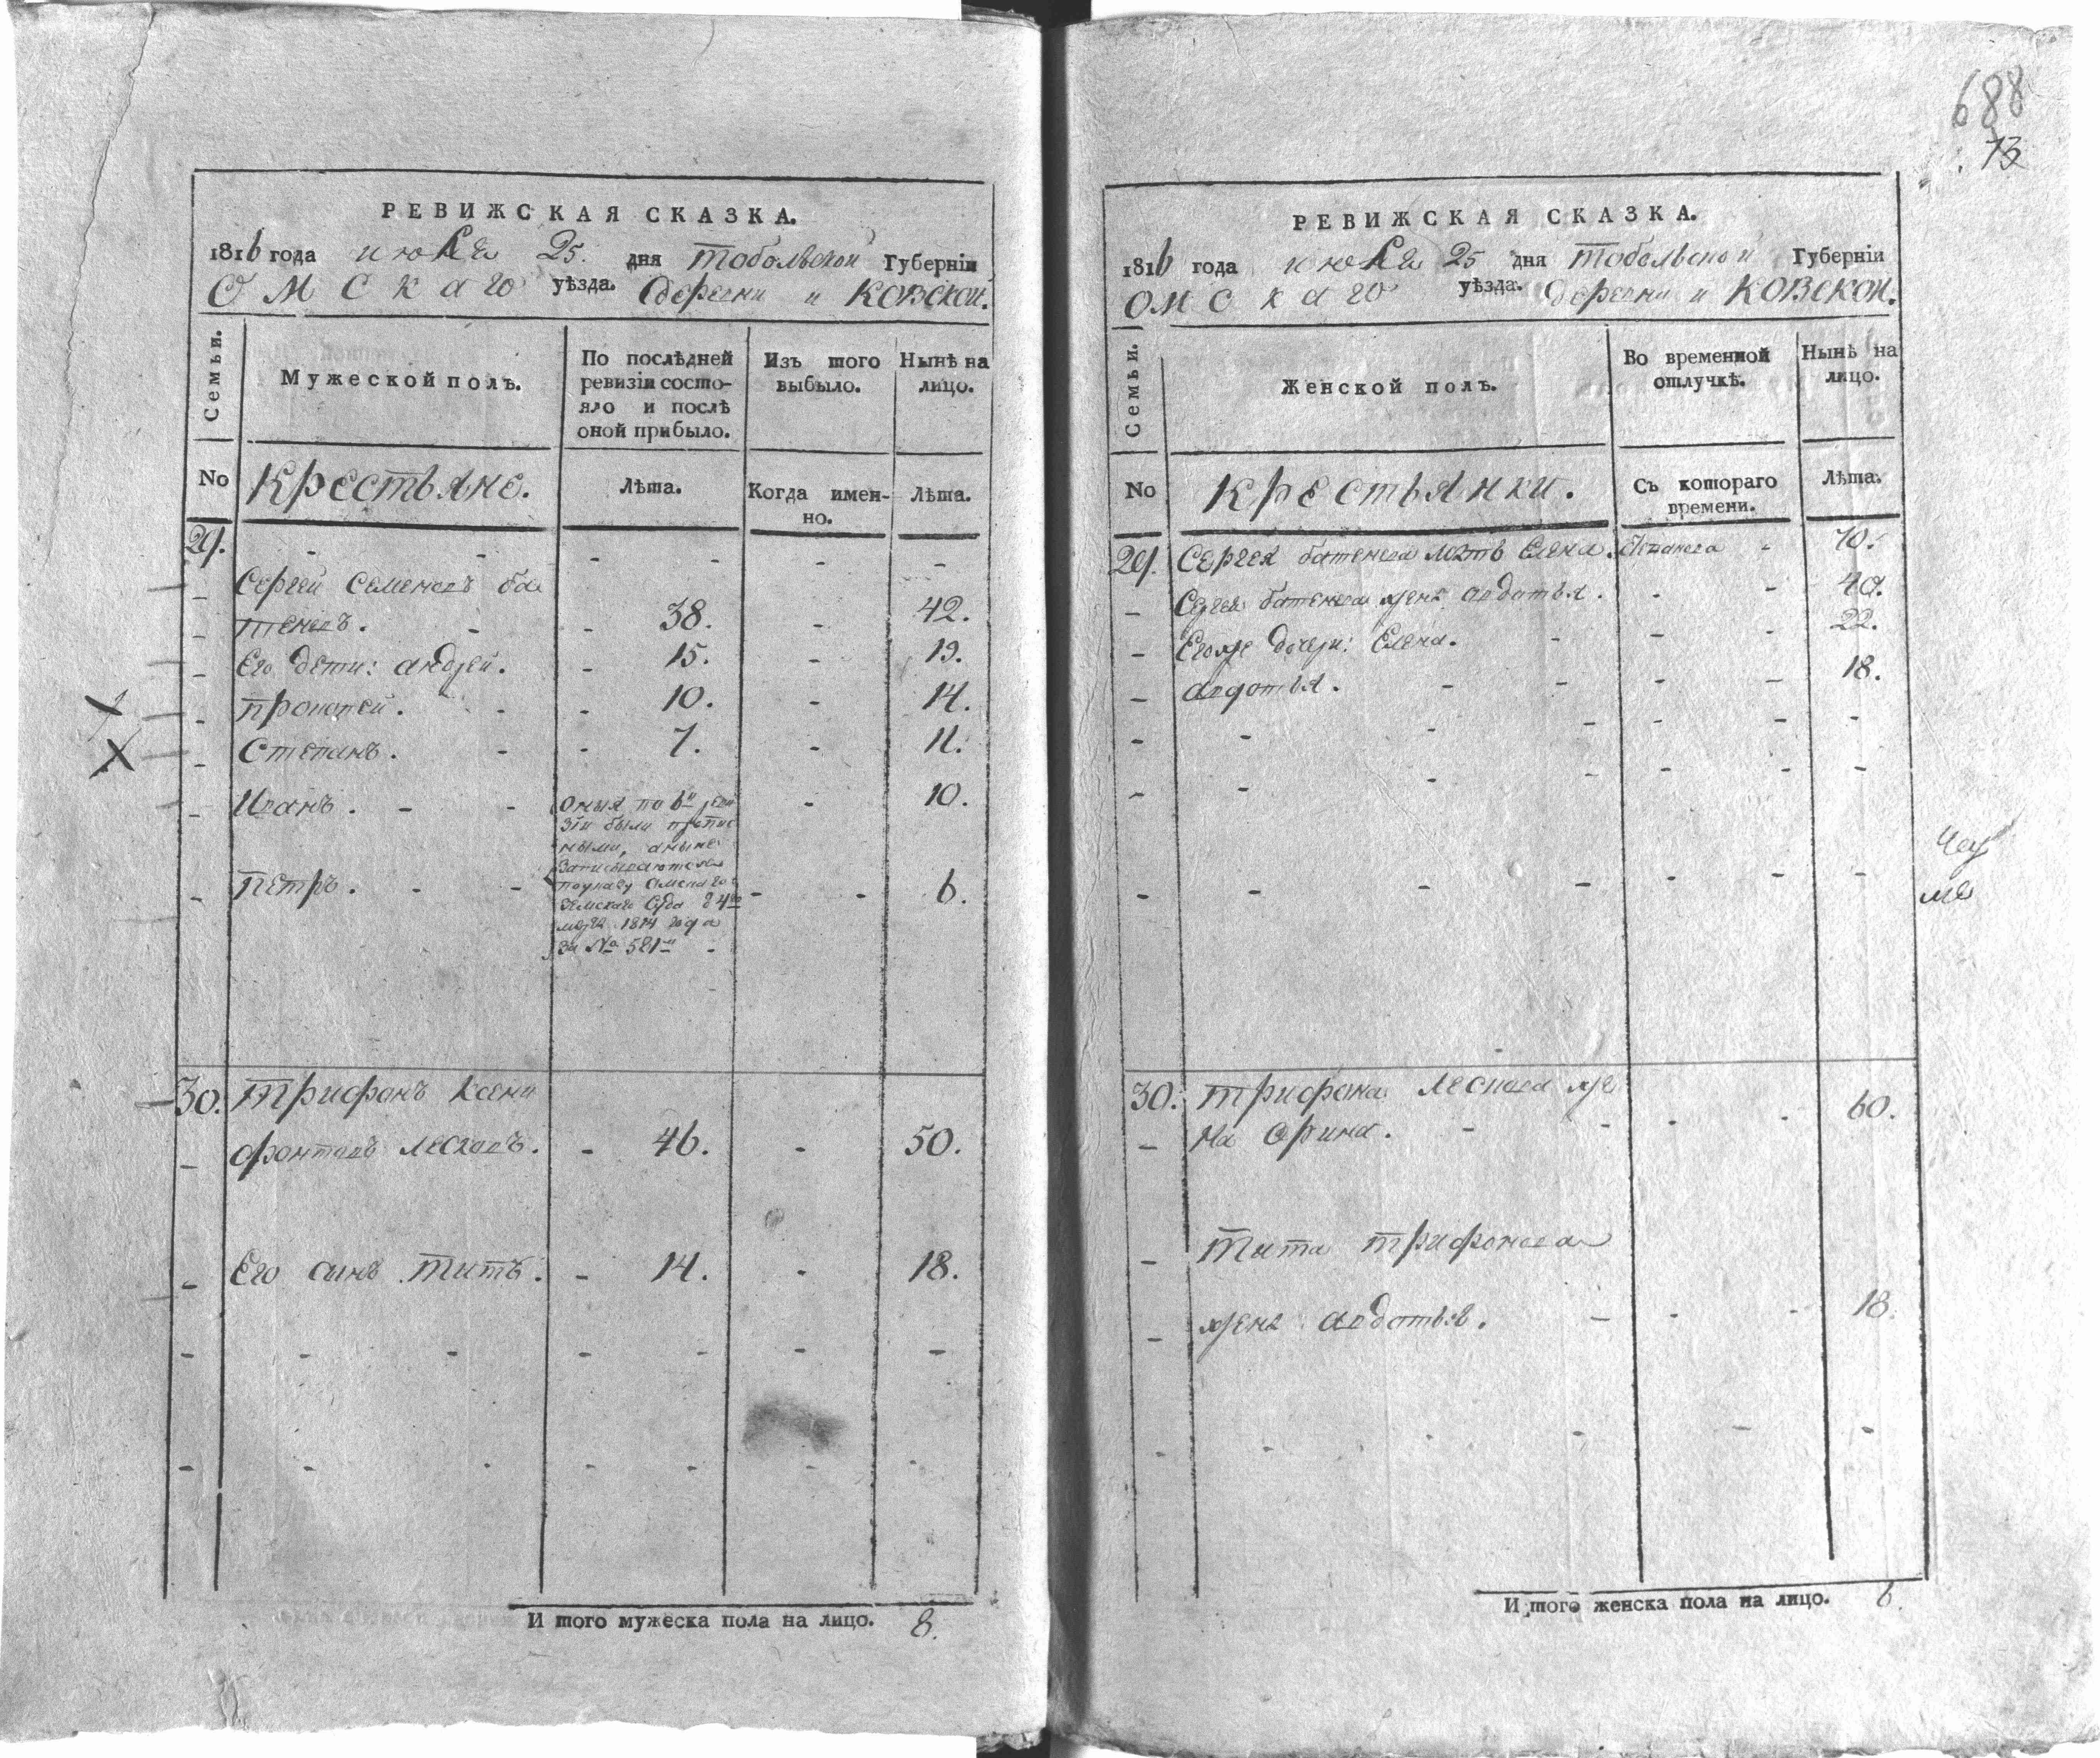 РЕВИЖСКАЯ СКАЗКА.
1816 года июля 25. дня Тобольской Губерніи
Омскаго уѣзда. деревни и Ковской.
Семьи.
Мужеской полъ.
По послѣдней
ревизіи состо-
яло и послѣ
оной прибыло.
Изъ того
выбыло.
Нынѣ на
лицо.
No
Крестьяне.
Лѣта.
Когда имен-
но.
Лѣта.
29.
Сергей Семеновъ ба
теневъ. 38. 42.
Его дети: андрей. 15. 19.
10. 14.
Степанъ. 7. 11.
Иванъ. 10.
Оныя по 6й реви
зіи были пропис
ными, аныне
записываются
поуказу Омскаго
Земскаго Суда
1814 года
за No 581м
Петръ. 6.
30. Трифонъ Ксени
фонтовъ лесковъ. 46. 50.
Его сынъ Титъ. 14. 18.
И того мужеска пола на лицо. 8.
688
73
РЕВИЖСКАЯ СКАЗКА.
1816 года июля 25 дня Тобольской Губерніи
Омскаго уѣзда. деревни и Ковской.
Семьи.
Женской полъ.
Во временной
отлучкѣ.
Нынѣ на
лицо.
No
Крестьянки.
Съ котораго
времени.
Лѣта.
29. Сергея батенева мать Елена. 70.
Сергея батенева жена авдотья. 40.
Егоже дочери: Елена. 22.
авдотья. 18.
30. Трифона лескова же
на Орина. 60.
Тита трифонова
жена авдотья. 18.
И того женска пола на лицо. 6.